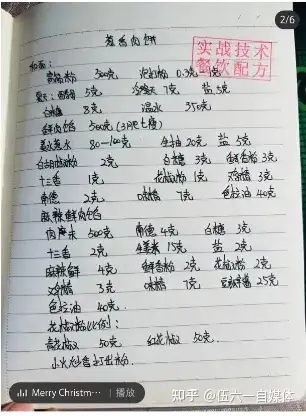 2/6
葱香肉饼
实战技术
餐饮配方
和面:
面粉 500克 泡打粉 0.3克
5克 7克 盐 5克
白糖 8克 温水 350克
鲜肉馅 500克(3肥七瘦)
葱姜水 80—100克 生抽 20克 盐 5克
白胡椒粉 2克 白糖 3克 鲜香粉 3克
十三香 1克 花椒粉 1克 鸡精 3克
2克 味精 7克 色拉油 40克
麻辣鲜肉馅
肉 500克 4克 白糖 3克
十三香 2克 15克 盐 2克
麻辣鲜 4克 鲜香粉 2克 花椒粉 2克
鸡精 3克 味精 7克 豆瓣酱 25克
色拉油 40克
花椒粉比例:
青花椒 50克 红花椒 50克
小火炒香打出粉.
Merry Christm... | 播放
知乎 @伍六一自媒体